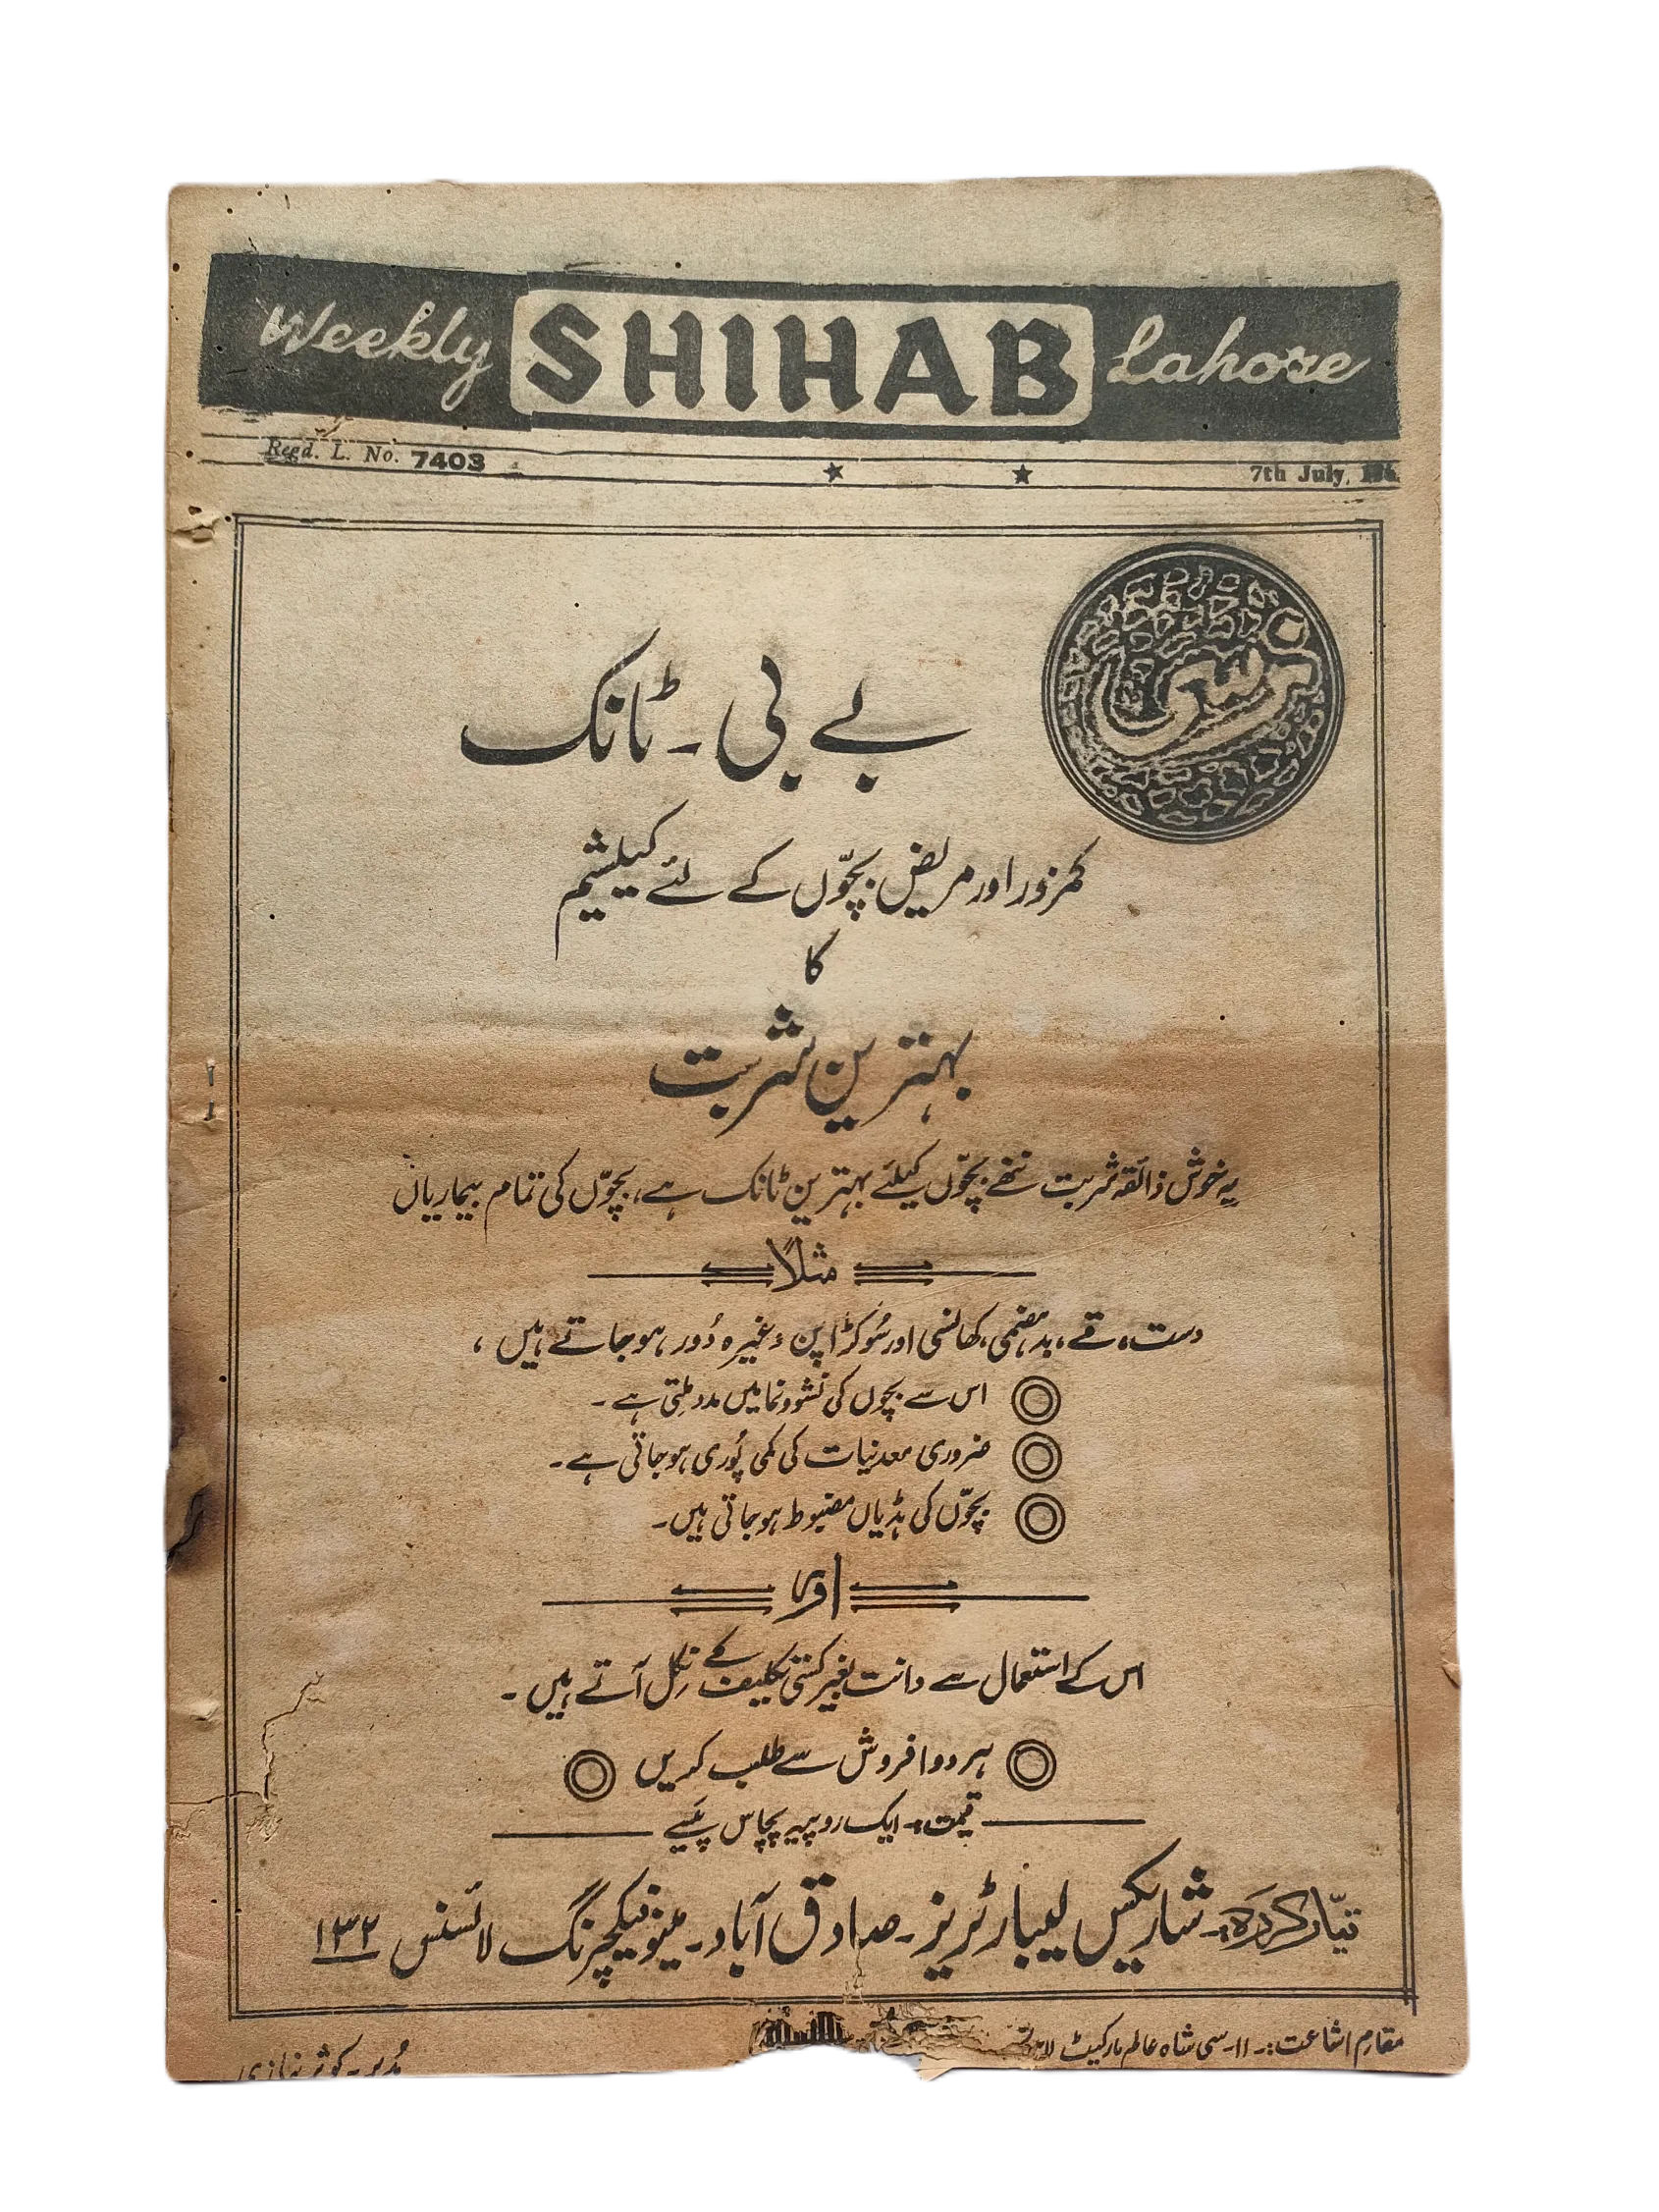 Weekly SHIHAB Lahore
Regd. L. No. 7403
7th July,
بے بی ۔ ٹانک
کمزور اور مریض بچّوں کے لئے کیلشیم
کا
بہترین شربت
یہ خوش ذائقہ شربت ننھے بچّوں کیلئے بہترین ٹانک ہے، بچّوں کی تمام بیماریاں
مثلاً
دست، قے، بدہضمی، کھانسی اور سُوکڑا پن وغیرہ دُور ہو جاتے ہیں،
اس سے بچوں کی نشوونما میں مدد ملتی ہے ۔
ضروری معدنیات کی کمی پُوری ہو جاتی ہے ۔
بچّوں کی ہڈیاں مضبوط ہو جاتی ہیں ۔
اور
اس کے استعمال سے دانت بغیر کسی تکلیف کے نِکل آتے ہیں ۔
ہر دوا فروش سے طلب کریں
قیمت:۔ ایک روپیہ پچاس پَیسے
تیّار کردَہ:۔ شاریکس لیبارٹریز ۔ صادق آباد ۔ مینوفیکچرنگ لائسنس ۱۳۲
مقام اشاعت:۔ ۱۱۔سی شاہ عالم مارکیٹ لاہور
مُدیر۔ کوثر نیازی